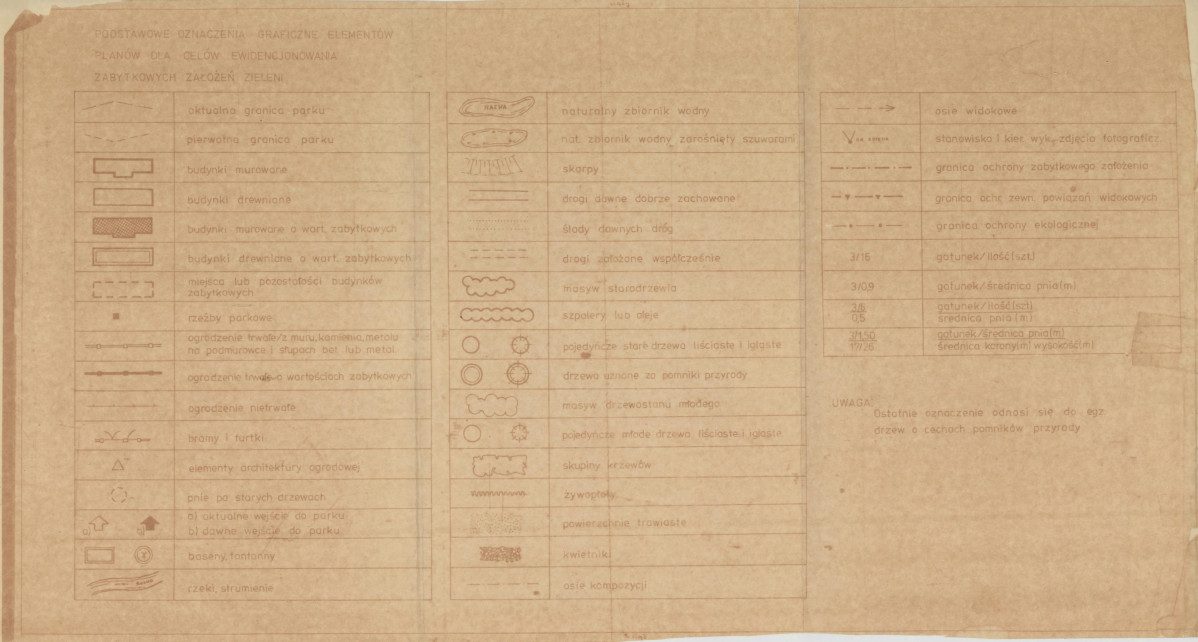 PODSTAWOWE OZNACZENIA GRAFICZNE ELEMENTÓW
PLANÓW DLA CELÓW EWIDENCJONOWANIA
ZABYTKOWYCH ZAŁOŻEŃ ZIELENI
aktualna granica parku
pierwotna granica parku
budynki murowane
budynki drewniane
budynki murowane o wart. zabytkowych
budynki drewniane o wart. zabytkowych
miejsca lub pozostałości budynków
zabytkowych
rzeźby parkowe
ogrodzenie trwałe/z muru, kamienia, metalu
na podmurówce i słupach bet. lub metal.
ogrodzenie trwałe o wartościach zabytkowych
ogrodzenie nietrwałe
bramy i furtki
elementy architektury ogrodowej
pnie po starych drzewach
a) b)
a) aktualne wejście do parku
b) dawne wejście do parku
baseny, fontanny
rzeki, strumienie
NAZWA
naturalny zbiornik wodny
nat. zbiornik wodny zarośnięty szuwarami
skarpy
drogi dawne dobrze zachowane
ślady dawnych dróg
drogi założone współcześnie
masyw starodrzewia
szpalery lub aleje
pojedyńcze stare drzewa liściaste i iglaste
drzewa uznane za pomniki przyrody
masyw drzewostanu młodego
pojedyńcze młode drzewa liściaste i iglaste
skupiny krzewów
żywopłoty
powierzchnie trawiaste
kwietniki
osie kompozycji
osie widokowe
stanowiska i kier. wyk. zdjęcia fotograficz.
granica ochrony zabytkowego założenia
granica ochr. zewn. powiązań widokowych
granica ochrony ekologicznej
3/16 gatunek/ilość(szt)
3/0,9 gatunek/średnica pnia(m)
3/6 gatunek/ilość(szt)
0,5 średnica pnia(m)
3/1,50 gatunek/średnica pnia(m)
17/26 średnica korony(m) wysokość(m)
UWAGA:
Ostatnie oznaczenie odnosi się do egz.
drzew o cechach pomników przyrody